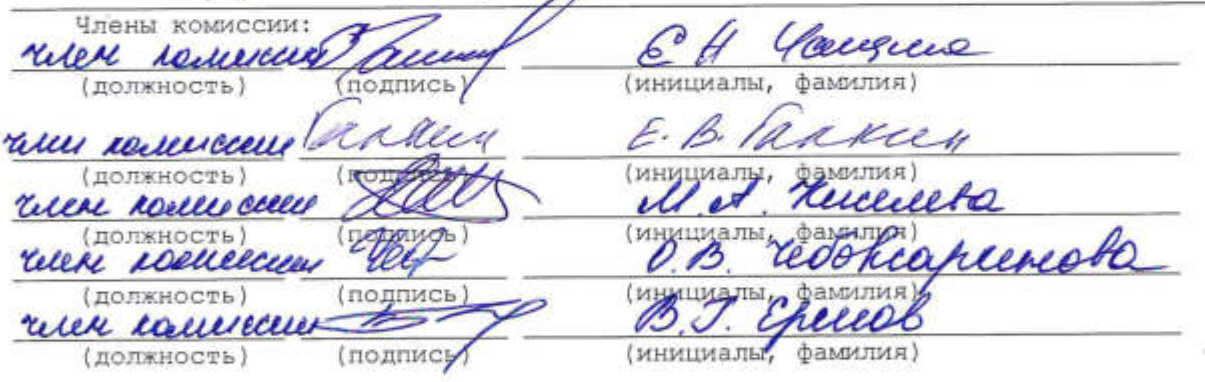 Члены комиссии:
член комиссии Е Н
(должность) (подпись) (инициалы, фамилия)
член комиссии Галкин Е. В. Галкин
(должность) (подпись) (инициалы, фамилия)
член комиссии М. А. Киселева
(должность) (подпись) (инициалы, фамилия)
член комиссии О. В.
(должность) (подпись) (инициалы, фамилия)
член комиссии В. Г.
(должность) (подпись) (инициалы, фамилия)